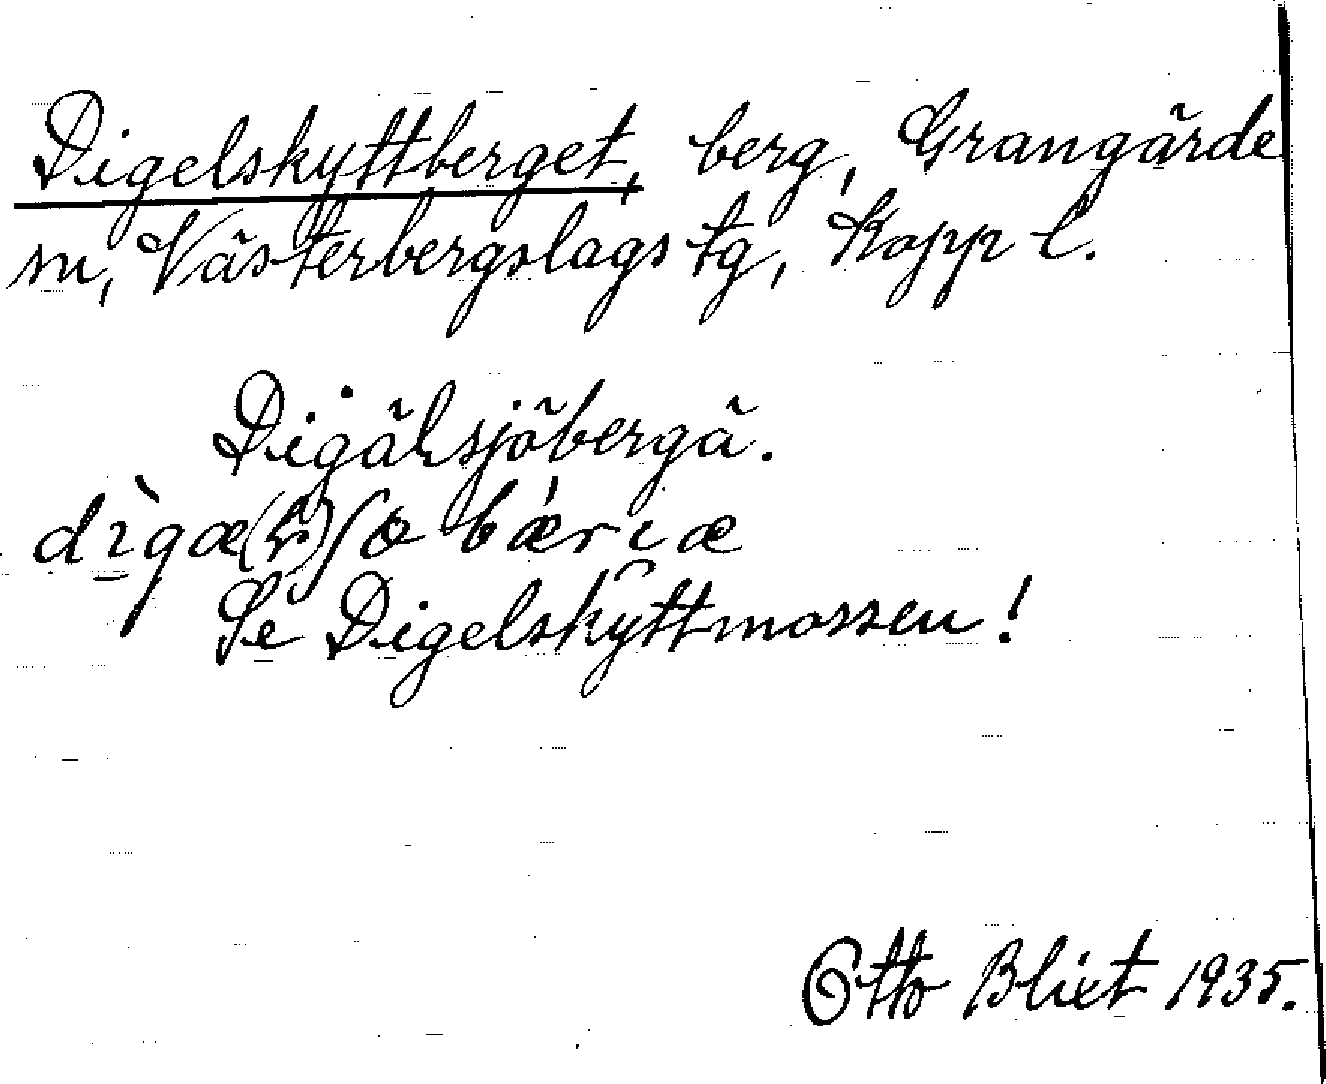 Digelskyttberget, berg, Grangärde
sn, Västerbergslags tg, Kopp l.
Digälsjöbergä.
Se Digelskyttmossen!
Otto Blixt 1935.